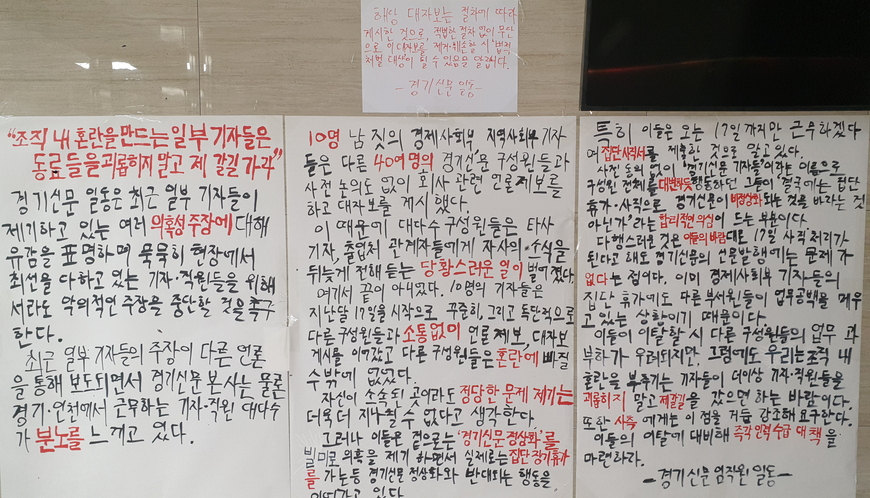 해당 대자보는 절차에 따라
게시한 것으로, 적법한 절차 없이 무단
으로 이 대자보를 제거·훼손할 시 법적
처벌 대상이 될 수 있음을 알립니다.
- 경기신문 일동 -
"조직 내 혼란을 만드는 일부 기자들은
동료들을 괴롭히지 말고 제 갈길 가라"
경기신문 일동은 최근 일부 기자들이
제기하고 있는 여러 의혹성 주장에 대해
유감을 표명하며 묵묵히 현장에서
최선을 다하고 있는 기자·직원들을 위해
서라도 악의적인 주장을 중단할 것을 촉구
한다.
최근 일부 기자들의 주장이 다른 언론
을 통해 보도되면서 경기신문 본사는 물론
경기·인천에서 근무하는 기자·직원 대다수
가 분노를 느끼고 있다.
10명 남짓의 경제사회부 지역사회부 기자
들은 다른 40여 명의 경기신문 구성원들과
사전 논의도 없이 회사 관련 언론제보를
하고 대자보를 게시했다.
이 때문에 대다수 구성원들은 타사
기자, 출입처 관계자들에게 자사의 소식을
뒤늦게 전해 듣는 당황스러운 일이 벌어졌다.
여기서 끝이 아니었다. 10명의 기자들은
지난달 17일을 시작으로 꾸준히, 그리고 독단적으로
다른 구성원들과 소통없이 언론제보, 대자보
게시를 이어갔고 다른 구성원들은 혼란에 빠질
수밖에 없었다.
자신이 소속된 곳이라도 정당한 문제 제기는
더욱 더 지나칠 수 없다고 생각한다.
그러나 이들은 겉으로는 '경기신문 정상화'를
빌미로 의혹을 제기하면서 실제로는 집단 장기휴가
를 가는 등 경기신문 정상화와 반대되는 행동을
이어가고 있다.
특히 이들은 오는 17일까지만 근무하겠다
며 집단 사직서를 제출한 것으로 알고 있다.
사전 논의 없이 '경기신문 기자들'이라는 이름으로
구성원 전체를 대변하듯 행동하던 그들이 결국에는 집단
휴가·사직으로 경기신문이 비정상화되는 것을 바라는 것
아닌가'라는 합리적인 의심이 드는 부분이다.
다행스러운 것은 이들의 바람대로 17일 사직 처리가
된다고 해도 경기신문의 신문발행에는 문제가
없다는 점이다. 이미 경제사회부 기자들의
집단 휴가에도 다른 부서원들이 업무공백을 메우
고 있는 상황이기 때문이다.
이들이 이탈할 시 다른 구성원들의 업무 과
부하가 우려되지만, 그럼에도 우리는 조직 내
혼란을 부추기는 기자들이 더이상 기자·직원들을
괴롭히지 말고 제갈길을 갔으면 하는 바람이다.
또한 사측에게는 이 점을 거듭 강조해 요구한다.
이들의 이탈에 대비해 즉각 인력 수급 대책을
마련하라.
- 경기신문 임직원 일동 -